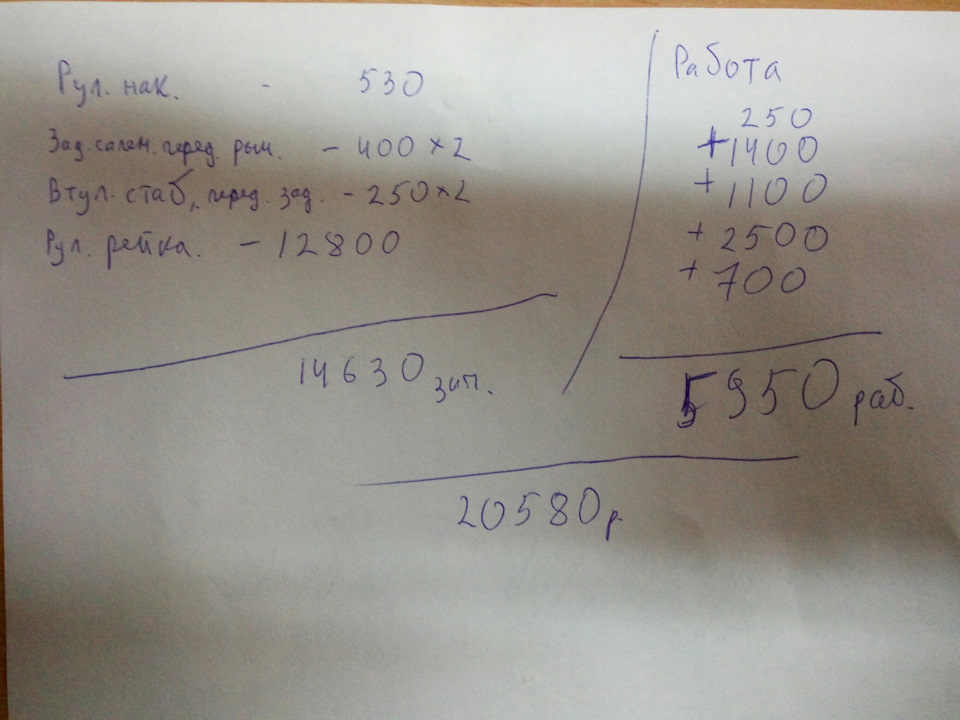 Рул. нак. - 530
Зад. сален. перед. рыч. - 400 × 2
Втул. стаб, перед. зад. - 250 × 2
Рул. рейка. - 12800
14630 зап.
Работа
250
+ 1400
+ 1100
+ 2500
+ 700
5950 раб.
20580 р.